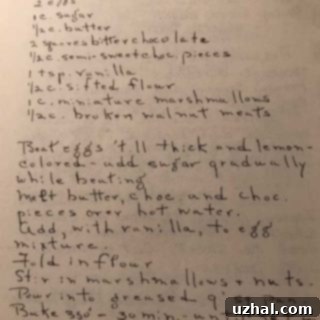 2 eggs
1 c. sugar
1/2 c. butter
2 squares bitter chocolate
1/2 c. semi-sweet choc. pieces
1 tsp. vanilla
1/2 c. sifted flour
1 c. miniature marshmallows
1/2 c. broken walnut meats
Beat eggs 'till thick and lemon-
colored - add sugar gradually
while beating
melt butter, choc. and choc.
pieces over hot water.
Add, with vanilla, to egg
mixture.
Fold in flour
Stir in marshmallows + nuts.
Pour into greased 9"
Bake 350° - 30 min.